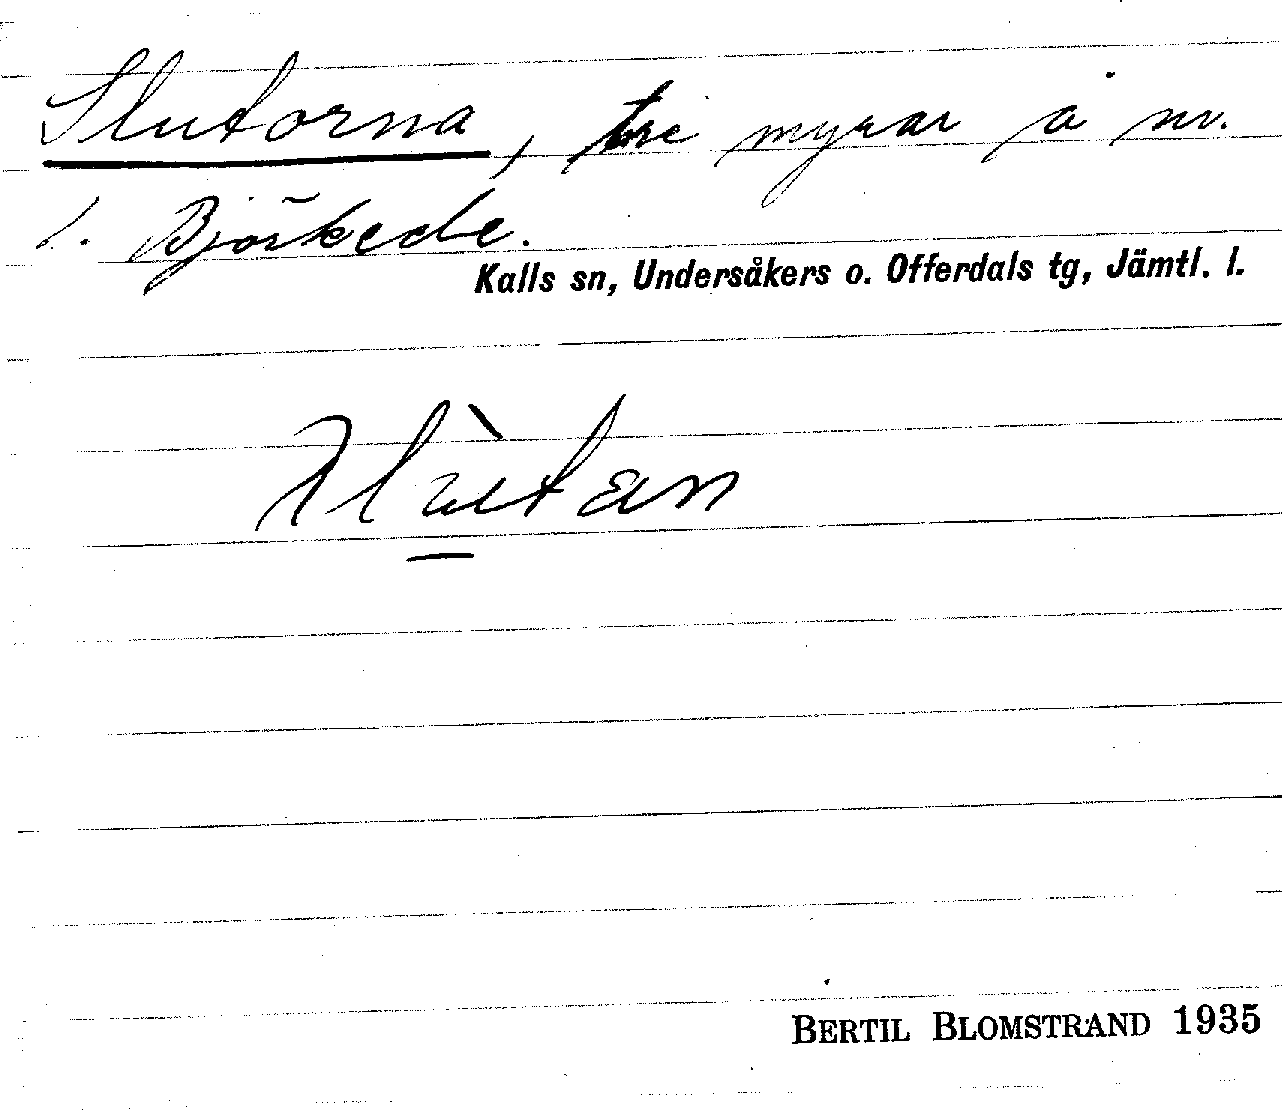 Slutorna, tre myrar å nr.
1. Björkede.
Kalls sn, Undersåkers o. Offerdals tg, Jämtl. l.
BERTIL BLOMSTRAND 1935